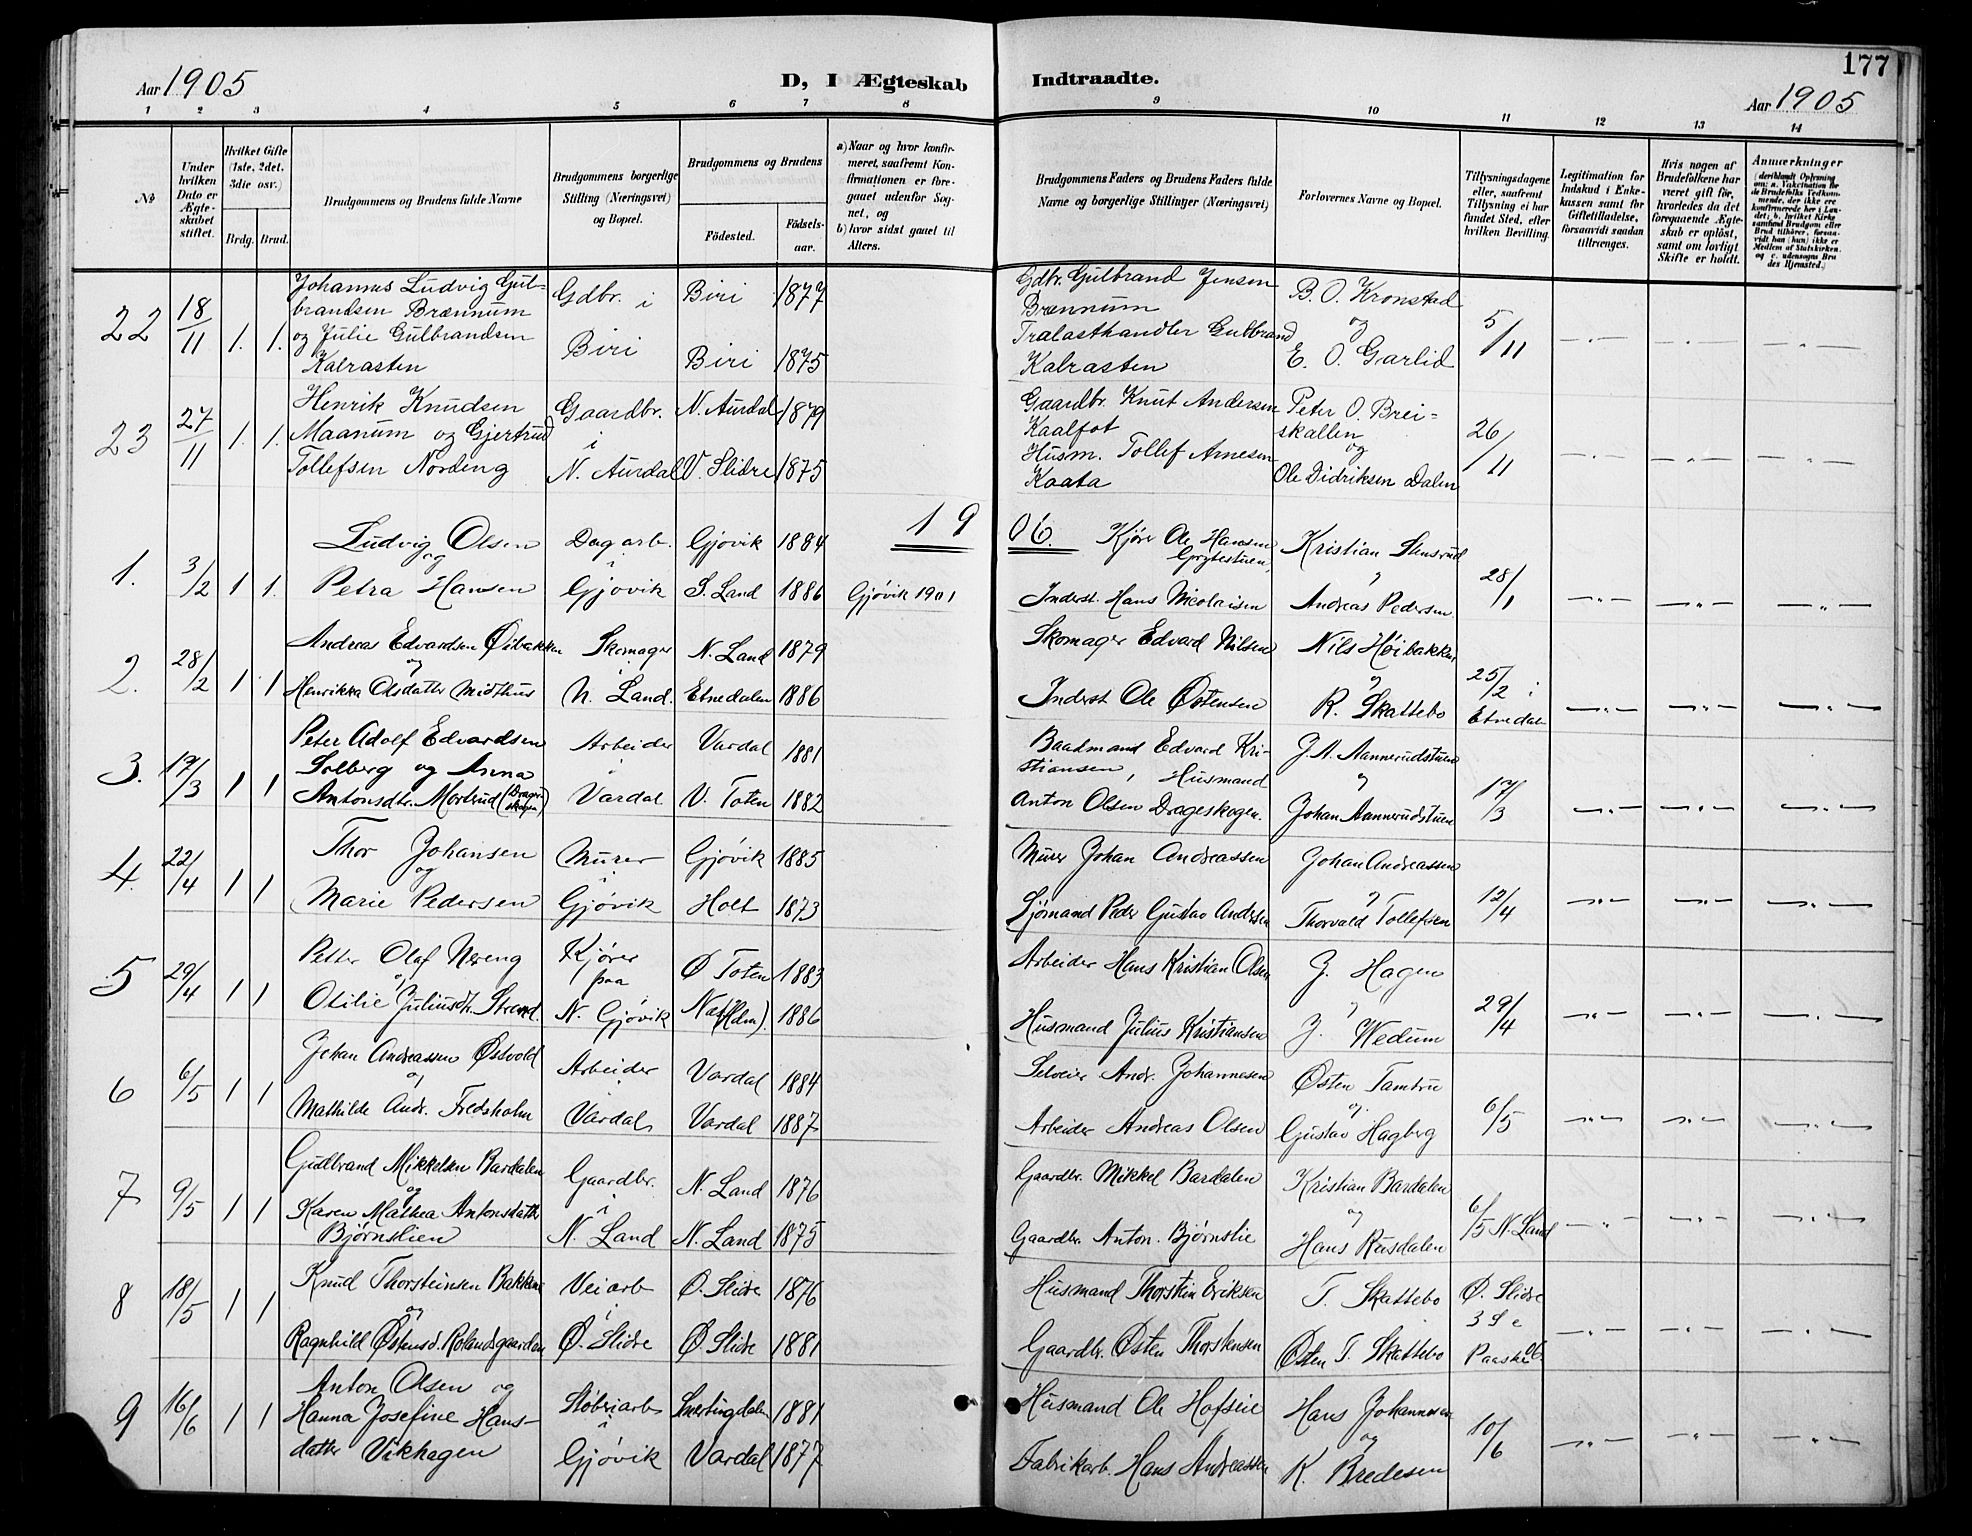 177
Aar 1905
D, I Ægteskab Indtraadte.
Aar 1905
1 2 3 4 5 6 7 8 9 10 11 12 13 14
No
Under hvilken Dato er Ægteskabet stiftet.
Hvilket Gifte (1ste, 2det, 3die osv.)
Brdg. Brud.
Brudgommens og Brudens fulde Navne
Brudgommens borgerlige Stilling (Næringsvei) og Bopæl.
Brudgommens og Brudens
Fødested.
Fødsels-aar.
a) Naar og hvor konfirmeret, saafremt Konfirmationen er foregaaet udenfor Sognet, og
b) hvor sidst gaaet til Alters.
Brudgommens Faders og Brudens Faders fulde Navne og borgerlige Stillinger (Næringsvei)
Forlovernes Navne og Bopæl.
Tillysningsdagene eller, saafremt Tillysning ei har fundet Sted, efter hvilken Bevilling.
Legitimation for Indskud i Enkekassen samt for Giftetilladelse, forsaavidt saadan tiltrænges.
Hvis nogen af Brudefolkene har været gift før, hvorledes da det foregaaende Ægteskab er opløst, samt om lovligt Skifte er holdt.
Anmærkninger
22 18/11 1. 1.
Johannes Ludvig Gulbrandsen Brænnum
og Julie Gulbrandsen
Kalrasten
Gdbr. i
Biri
Biri 1877
Biri 1875
Gdbr. Gulbrand Jensen
Brænnum
Tralasthandler Gulbrand
Kalrasten
B. O. Kronstad
og
E. O. Garlid
5/11
23 27/11 1. 1.
Henrik Knudsen
Maanum og Gjertrud
Tollefsen Nordeng
Gaardbr.
i
N. Aurdal
N. Aurdal 1879
V. Slidre 1875
Gaardbr. Knut Andersen
Kaalfot
Husm. Tollef Arnesen
Kaata
Peter O. Breiskallen
og
Ole Didriksen Dalen
26/11
1906.
1. 3/2 1 1.
Ludvig Olsen
og
Petra Hansen
Dagarb.
i
Gjøvik
Gjøvik 1884
S. Land 1886
Gjøvik 1901
Kjører Ole Hansen
Inderst. Hans Nicolaisen
Kristian Stensrud
Andreas Pedersen
28/1
2. 28/2 1 1
Andreas Edvardsen Øibakken
og
Henrikka Olsdatter Midthus
Skomager
i
N. Land.
N. Land 1879
Etnedalen 1886
Skomager Edvard Nilsen
Inderst Ole Østensen
Nils Høibakken
R. Skattebo
25/2 i
Etnedal
3. 19/3 1 1
Peter Adolf Edvardsen
Solberg og Anna
Antonsdtr. Morterud (Drageskogen)
Arbeider
i
Vardal
Vardal 1881
V. Toten 1882
Baadmand Edvard Kristiansen, Husmand
Anton Olsen Drageskogen.
J. N. Aannerudstuen
Johan Aannerudstuen
17/3
4. 22/4 1 1
Thor Johansen
og
Marie Pedersen
Murer
i
Gjøvik
Gjøvik 1885
Holt 1873
Murer Johan Andreassen
Sjømand Peder Gustav Andersen
Johan Andreassen
Thorvald Tollefsen
12/4
5 29/4 1 1
Petter Olaf Nereng
og
Otilie Juliusdtr. Strand.
Kjører
paa
N. Gjøvik
Ø. Toten 1883
Næs (Hdm). 1886
Arbeider Hans Kristian Olsen
Husmand Julius Kristiansen
J. Hagen
J. Wedum
29/4
6 6/5 1 1
Johan Andreassen Østvold
og
Mathilde Andr. Fredsholm
Arbeider
i
Vardal
Vardal 1884
Vardal 1887
Selveier Andr. Johannesen
Arbeider Andreas Olsen
Østen Tambru
og
Gustav Hagberg
6/5
7 9/5 1 1
Gudbrand Mikkelsen Bardalen
og
Karen Mathea Antonsdatter
Bjørnslien
Gaardbr.
i
N. Land
N. Land 1876
N. Land 1875
Gaardbr. Mikkel Bardalen
Gaardbr. Anton. Bjørnslie
Kristian Bardalen
og
Hans Rusdalen
6/5 N. Land
8 18/5 1 1
Knud Thorsteinsen Bakkene
og
Ragnhild Østensd. Rolandsgaarden
Veiarb
i
Ø. Slidre
Ø. Slidre 1876
Ø. Slidre 1881
Husmand Thorstein Eriksen
Gaardbr. Østen Thorstensen
T. Skattebo
Østen T. Skattebo
Ø. Slidre
3 S e
Paaske 06.
9 16/6 1 1
Anton Olsen og
Hanna Josefine Hansdatter Vikhagen
Støberiarb
i
Gjøvik
Snertingdalen 1881
Vardal 1877
Husmand Ole Hofseie
Fabrikarb. Hans Andreassen
Hans Johannesen
og
K. Bredesen
10/6